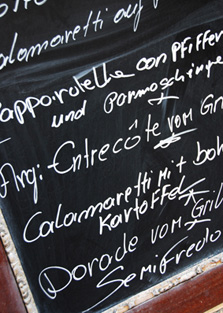 Calamaretti auf
Papardelle con Pfiffer
und Parmaschinke
Arg: Entrecôte vom Gri
Calamaretti mit boh
Kartoffel
Dorade vom Gril
Semifredo